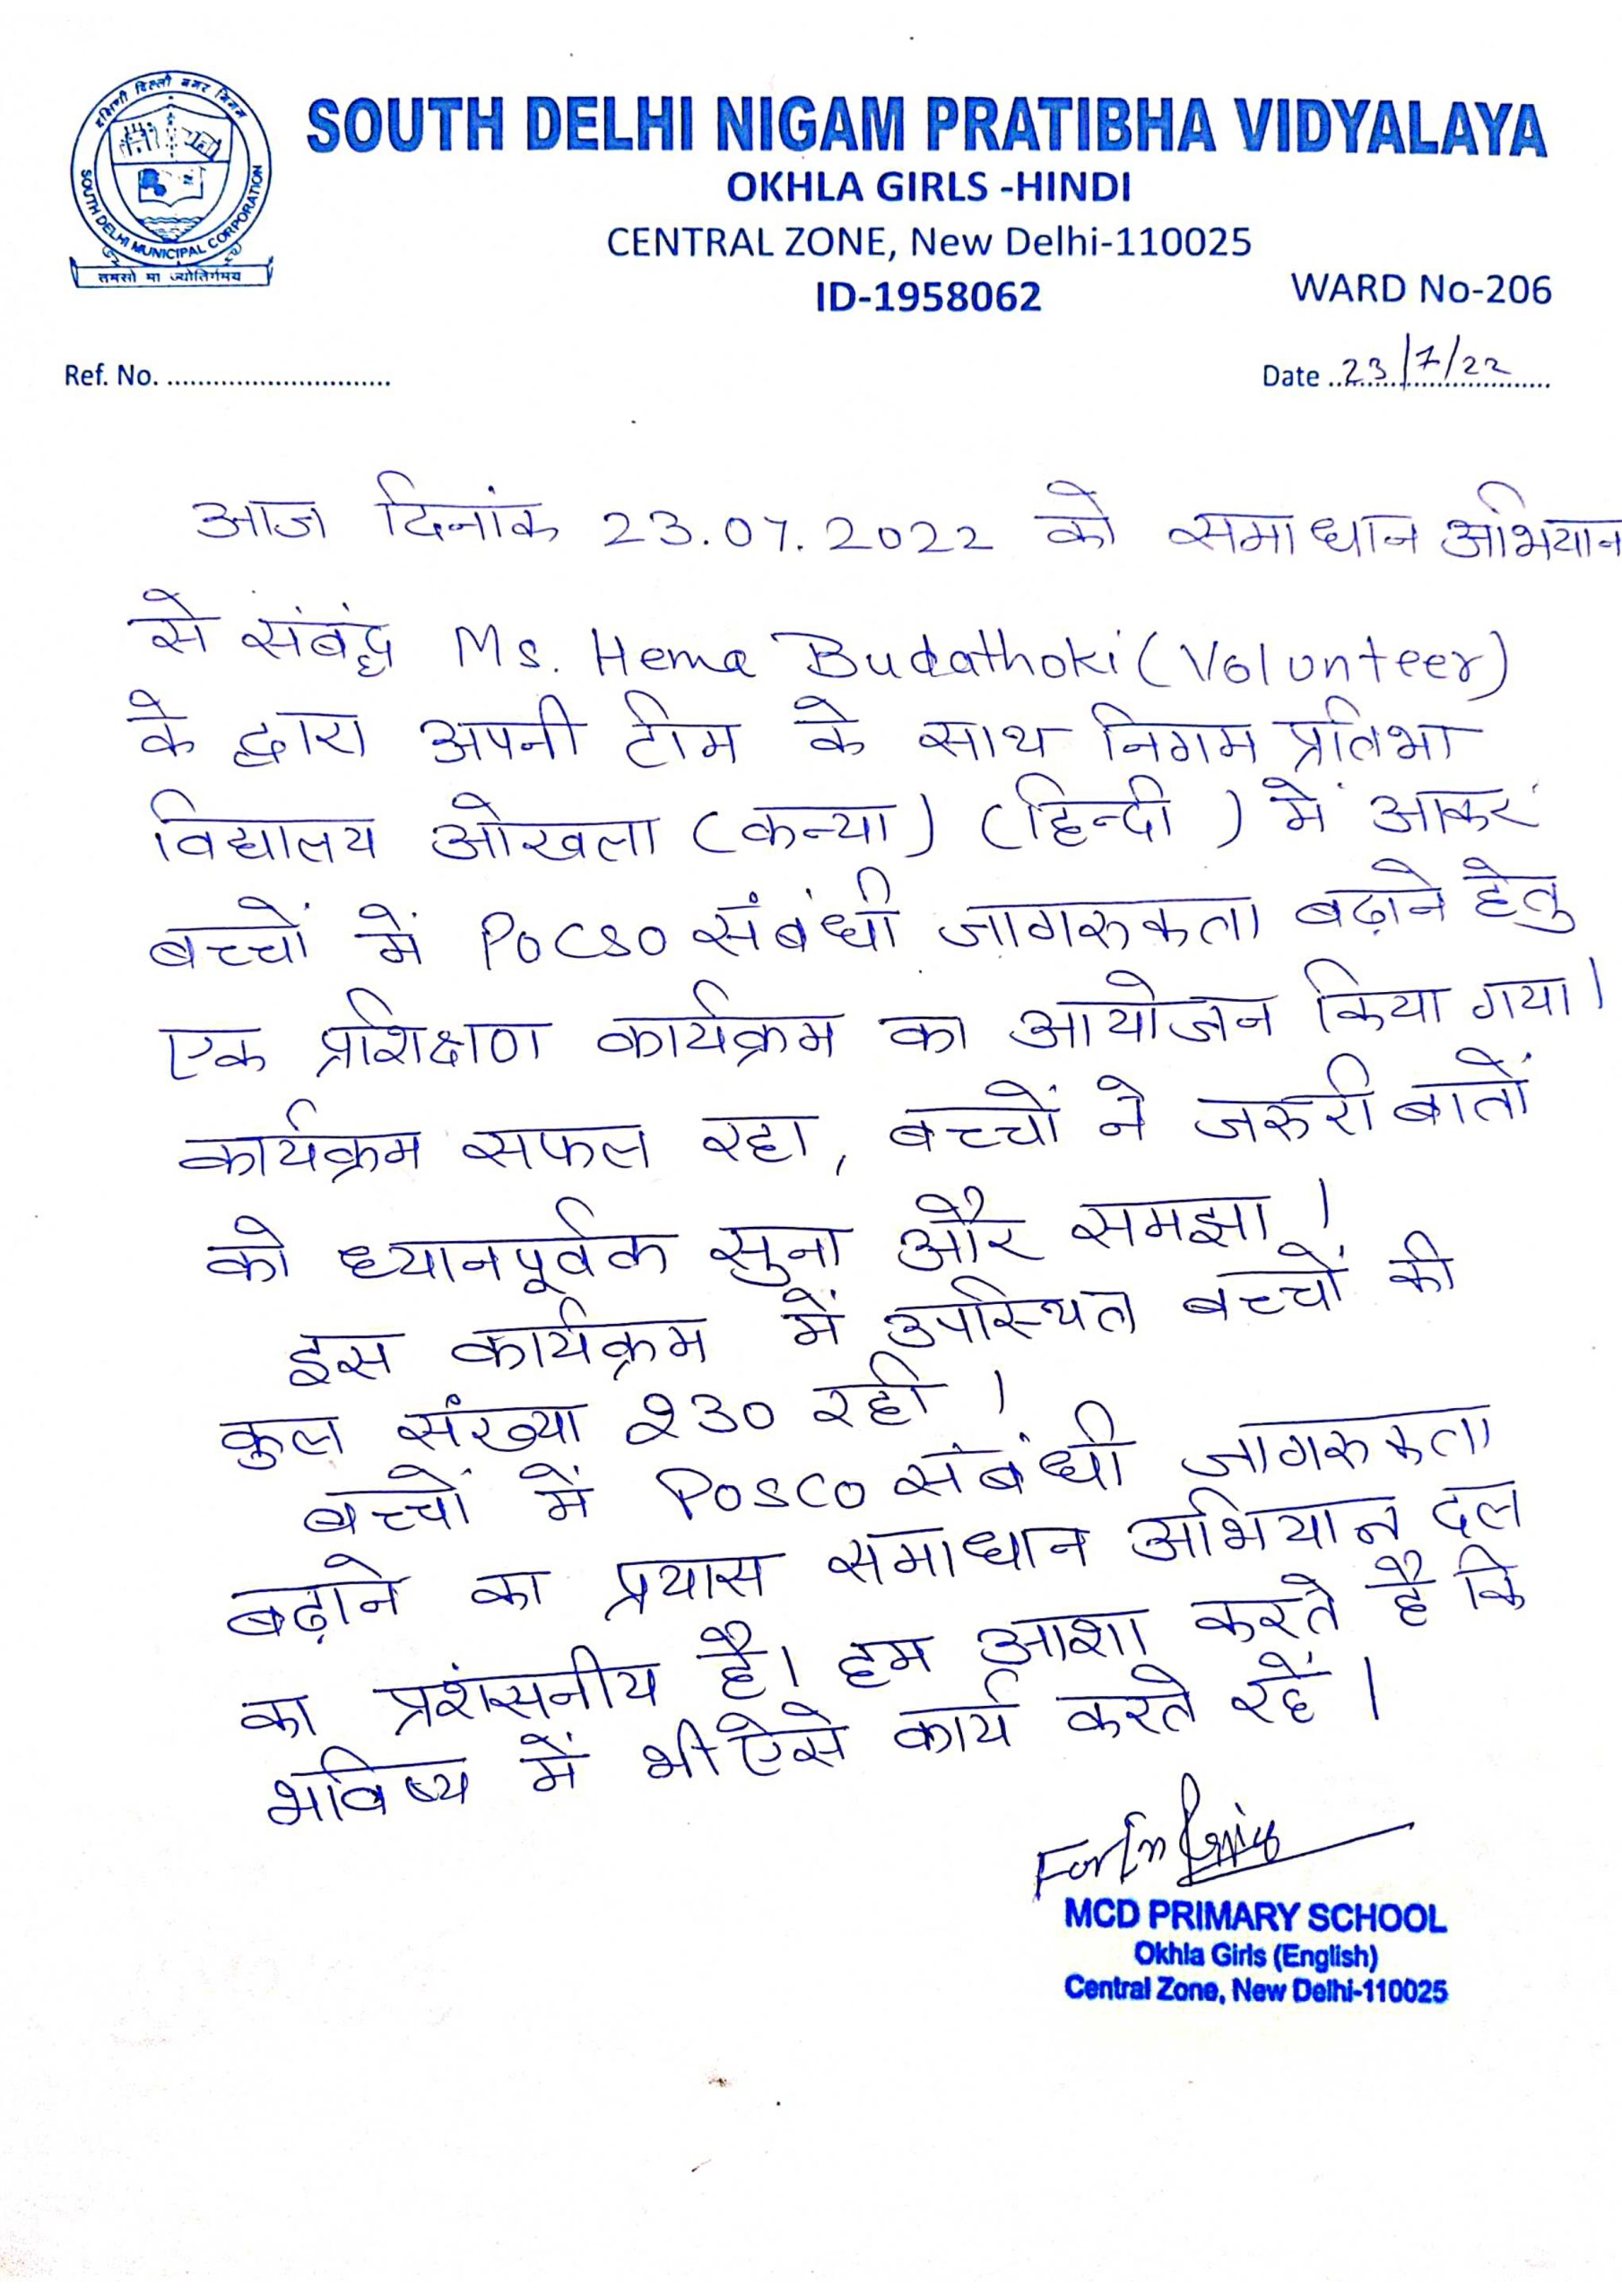 दक्षिणी दिल्ली नगर निगम
SOUTH DELHI MUNICIPAL CORPORATION
तमसो मा ज्योतिर्गमय
SOUTH DELHI NIGAM PRATIBHA VIDYALAYA
OKHLA GIRLS -HINDI
CENTRAL ZONE, New Delhi-110025
ID-1958062
WARD No-206
Ref. No. ..............................
Date ..23/7/22..........
आज दिनांक 23.07.2022 को समाधान अभियान
से संबंद्ध Ms. Hema Budathoki (Volunteer)
के द्वारा अपनी टीम के साथ निगम प्रतिभा
विद्यालय ओखला (कन्या) (हिन्दी) में आकर
बच्चों में POCSO संबंधी जागरुकता बढ़ाने हेतु
एक प्रशिक्षण कार्यक्रम का आयोजन किया गया।
कार्यक्रम सफल रहा, बच्चों ने जरुरी बातों
को ध्यानपूर्वक सुना और समझा।
इस कार्यक्रम में उपस्थित बच्चों की
कुल संख्या 230 रही।
बच्चों में POSCO संबंधी जागरुकता
बढ़ाने का प्रयास समाधान अभियान दल
का प्रशंसनीय है। हम आशा करते है कि
भविष्य में भी ऐसे कार्य करते रहें।
For
MCD PRIMARY SCHOOL
Okhla Girls (English)
Central Zone, New Delhi-110025